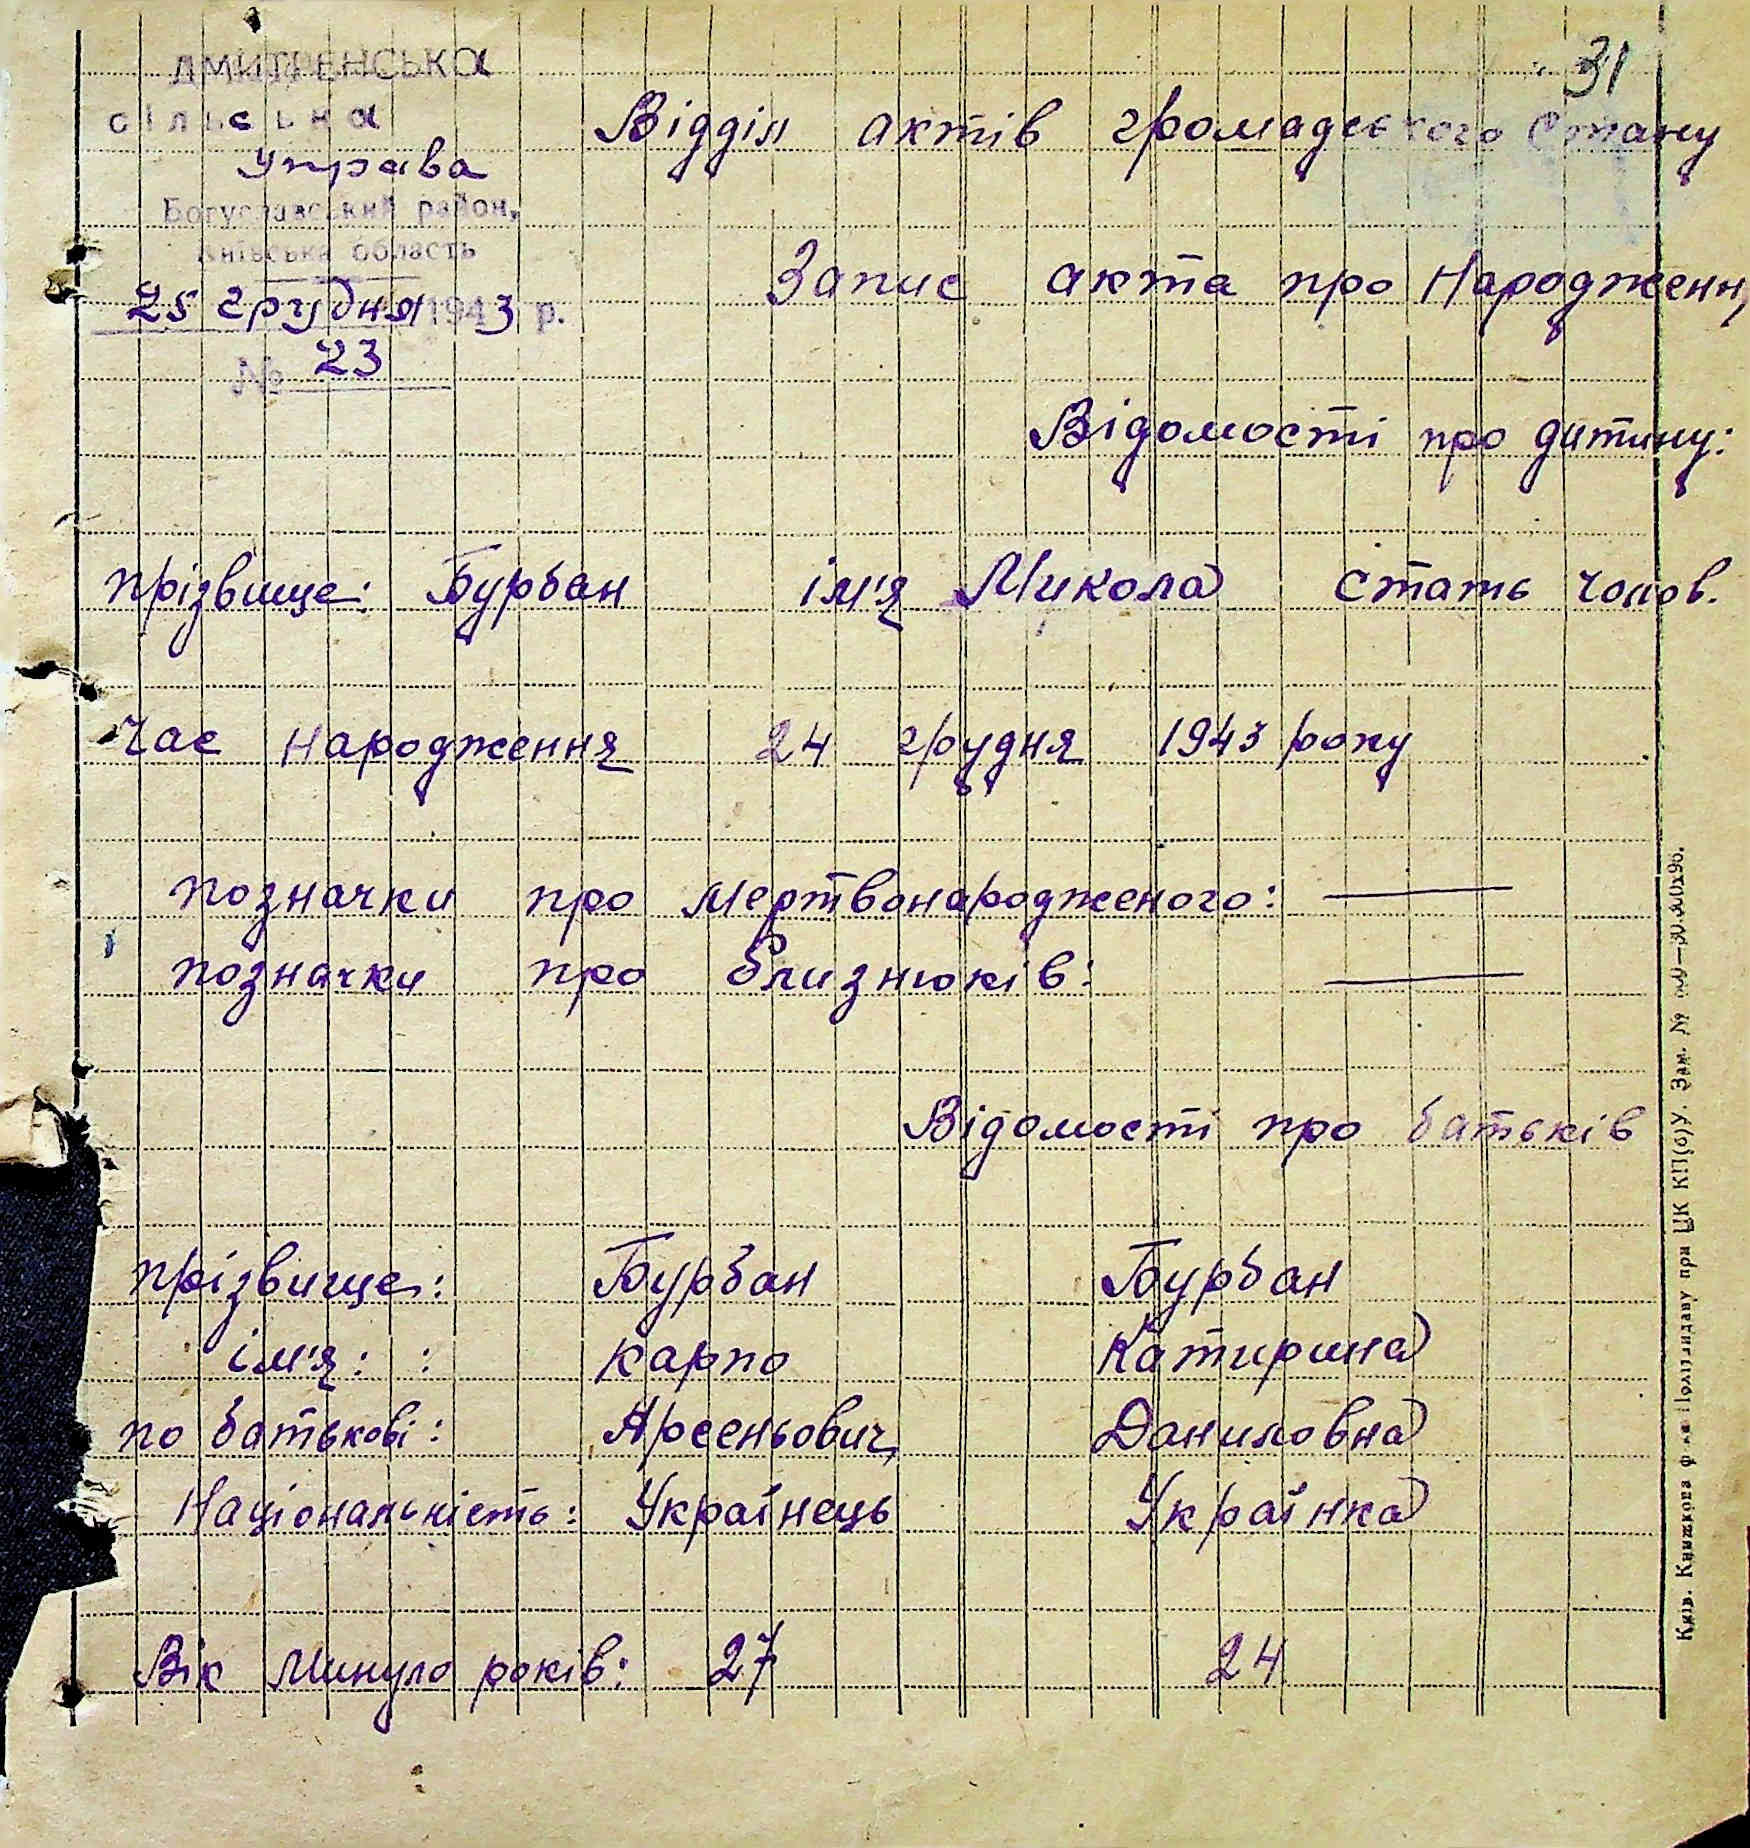 31
ДМИТРЕНСЬКА
сільська
Управа
Богуславський район,
Київська область
25 грудня 1943 р.
№ 23
Відділ актів громадського стану
Запис акта про Народженн
Відомості про дитину:
прізвище: Бурбан ім'я Микола стать чолов.
Час народження 24 грудня 1943 року
позначки про мертвонародженого: —
позначки про близнюків: —
Відомості про батьків
прізвище: Бурбан Бурбан
ім'я: : Карпо Катирина
по батькові: Арсеньович Даниловна
Національність: Українець Українка
Вік Минуло років: 27 24
Київ. Книжкова ф-ка Політвидаву при ЦК КП(б)У. Зам. №